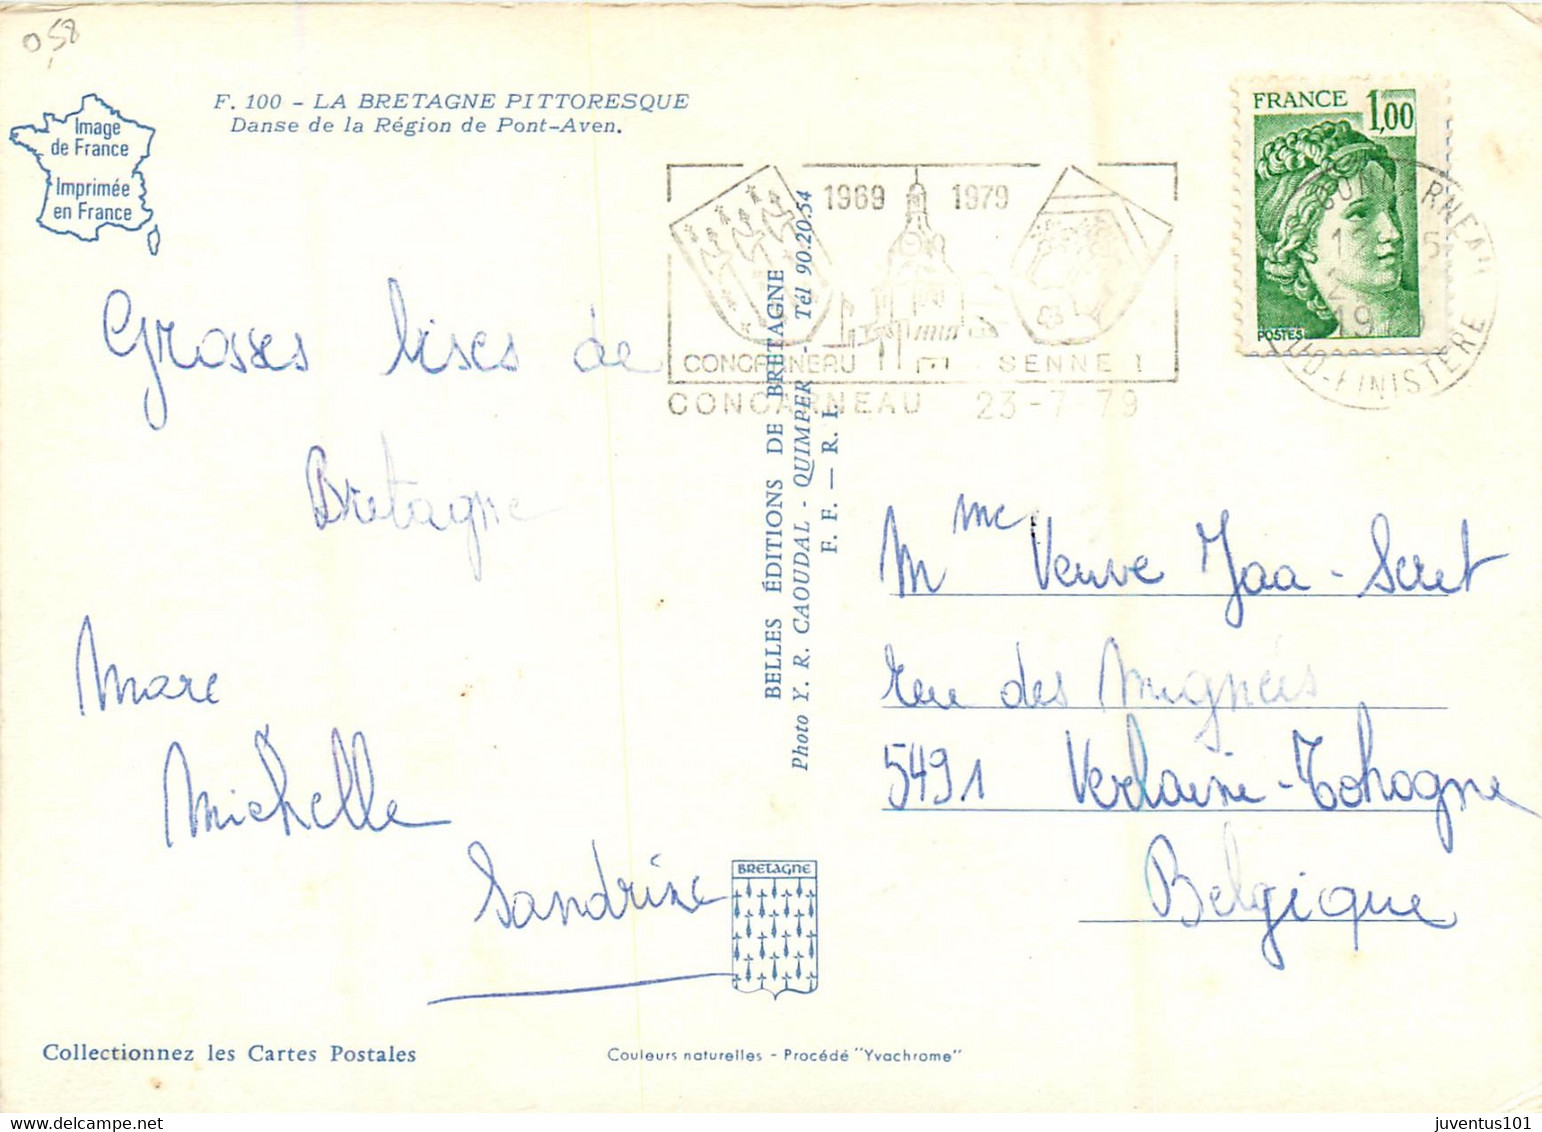 058
Image
de France
Imprimée
en France
F. 100 - LA BRETAGNE PITTORESQUE
Danse de la Région de Pont-Aven.
FRANCE 1,00
POSTES
1969 1979
CONCARNEAU SENNE
CONCARNEAU 23-7 79
CONCARNEAU
19
FINISTERE
BELLES ÉDITIONS DE BRETAGNE
Photo Y. R. CAOUDAL - QUIMPER - Tél 90.20-54
F. F. — R. I.
Grosses bises de
Bretagne
Marc
Michelle
Sandrine
Mme Veuve Jaa-Seret
rue des
5491 Verlaine-Tohogne
Belgique
BRETAGNE
Collectionnez les Cartes Postales
Couleurs naturelles - Procédé "Yvachrome"
juventus101